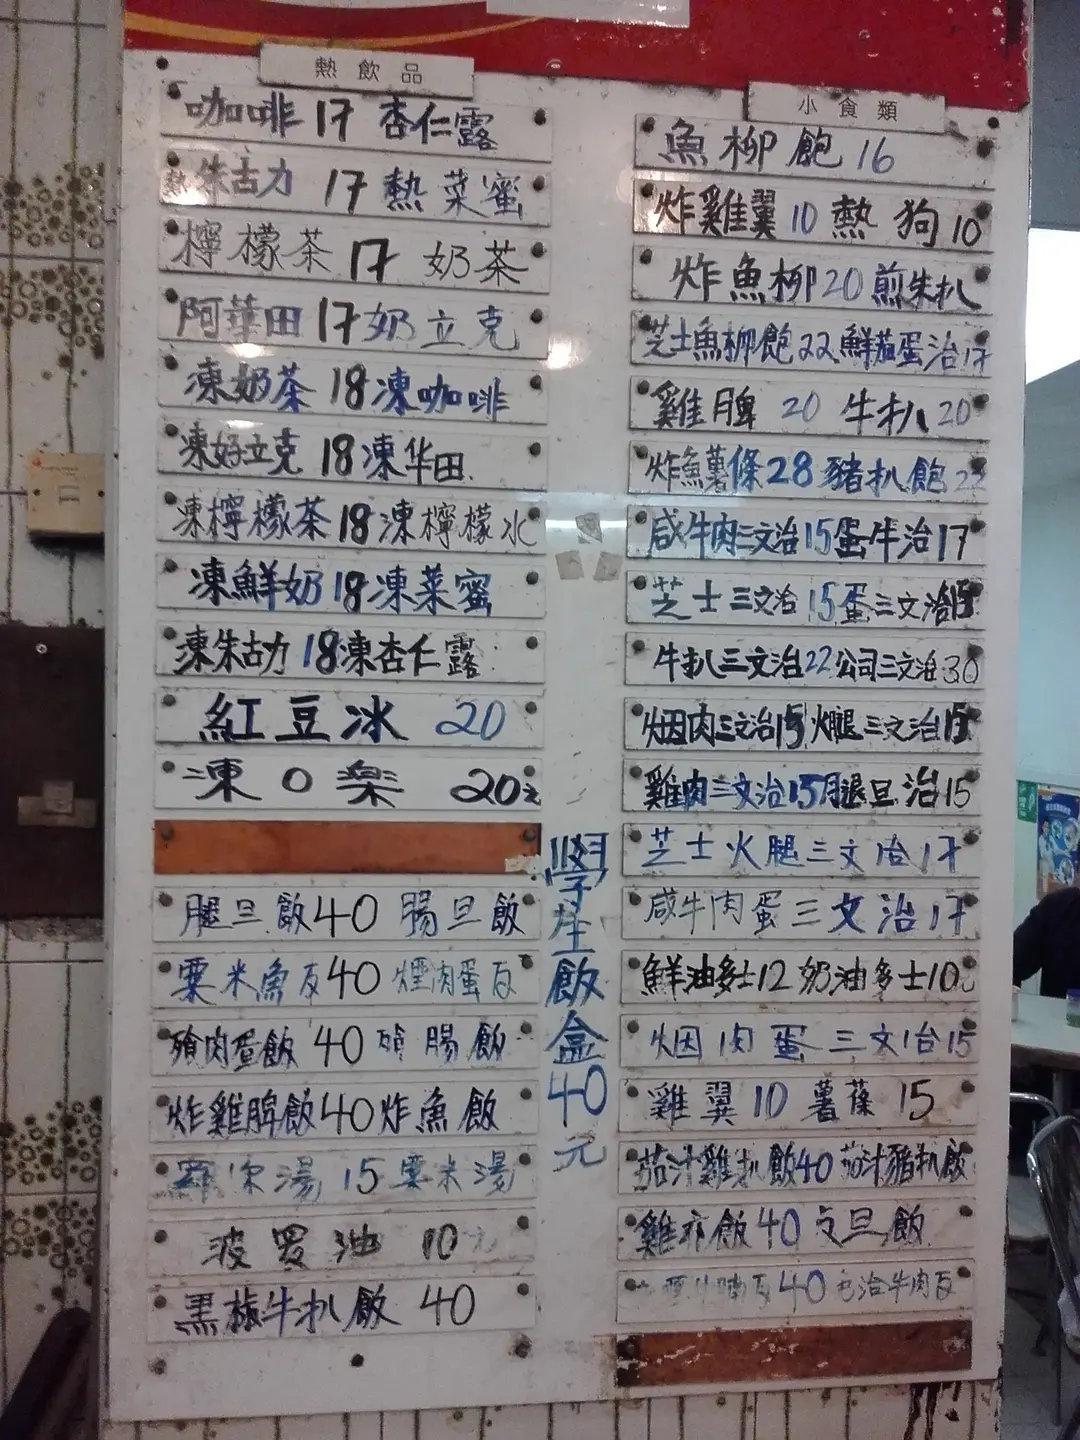 熱飲品
咖啡 17 杏仁露
熱朱古力 17 熱菜蜜
檸檬茶 17 奶茶
阿華田 17 奶立克
凍奶茶 18 凍咖啡
凍好立克 18 凍华田
凍檸檬茶 18 凍檸檬水
凍鮮奶 18 凍菜蜜
凍朱古力 18 凍杏仁露
紅豆冰 20
凍〇樂 20元
腿旦飯 40 腸旦飯
粟米魚反 40 煙肉蛋反
肉蛋飯 40 腸飯
炸雞脾飯 40 炸魚飯
羅宋湯 15 粟米湯
波罗油 10元
黑椒牛扒飯 40
學生飯盒40元
小食類
魚柳飽 16
炸雞翼 10 熱狗 10
炸魚柳 20 煎朱扒
芝士魚柳飽 22 鮮茄蛋治 17
雞脾 20 牛扒 20
炸魚薯條 28 豬扒飽 22
咸牛肉三文治 15 蛋牛治 17
芝士三文治 15 蛋三文治 15
牛扒三文治 22 公司三文治 30
烟肉三文治 15 火腿三文治 15
雞肉三文治 15 腿旦治 15
芝士火腿三文治 17
咸牛肉蛋三文治 17
鮮油多士 12 奶油多士 10
烟肉蛋三文治 15
雞翼 10 薯蓧 15
茄汁雞扒飯 40 茄汁豬扒飯
雞亦飯 40 旦飯
40 治牛肉反